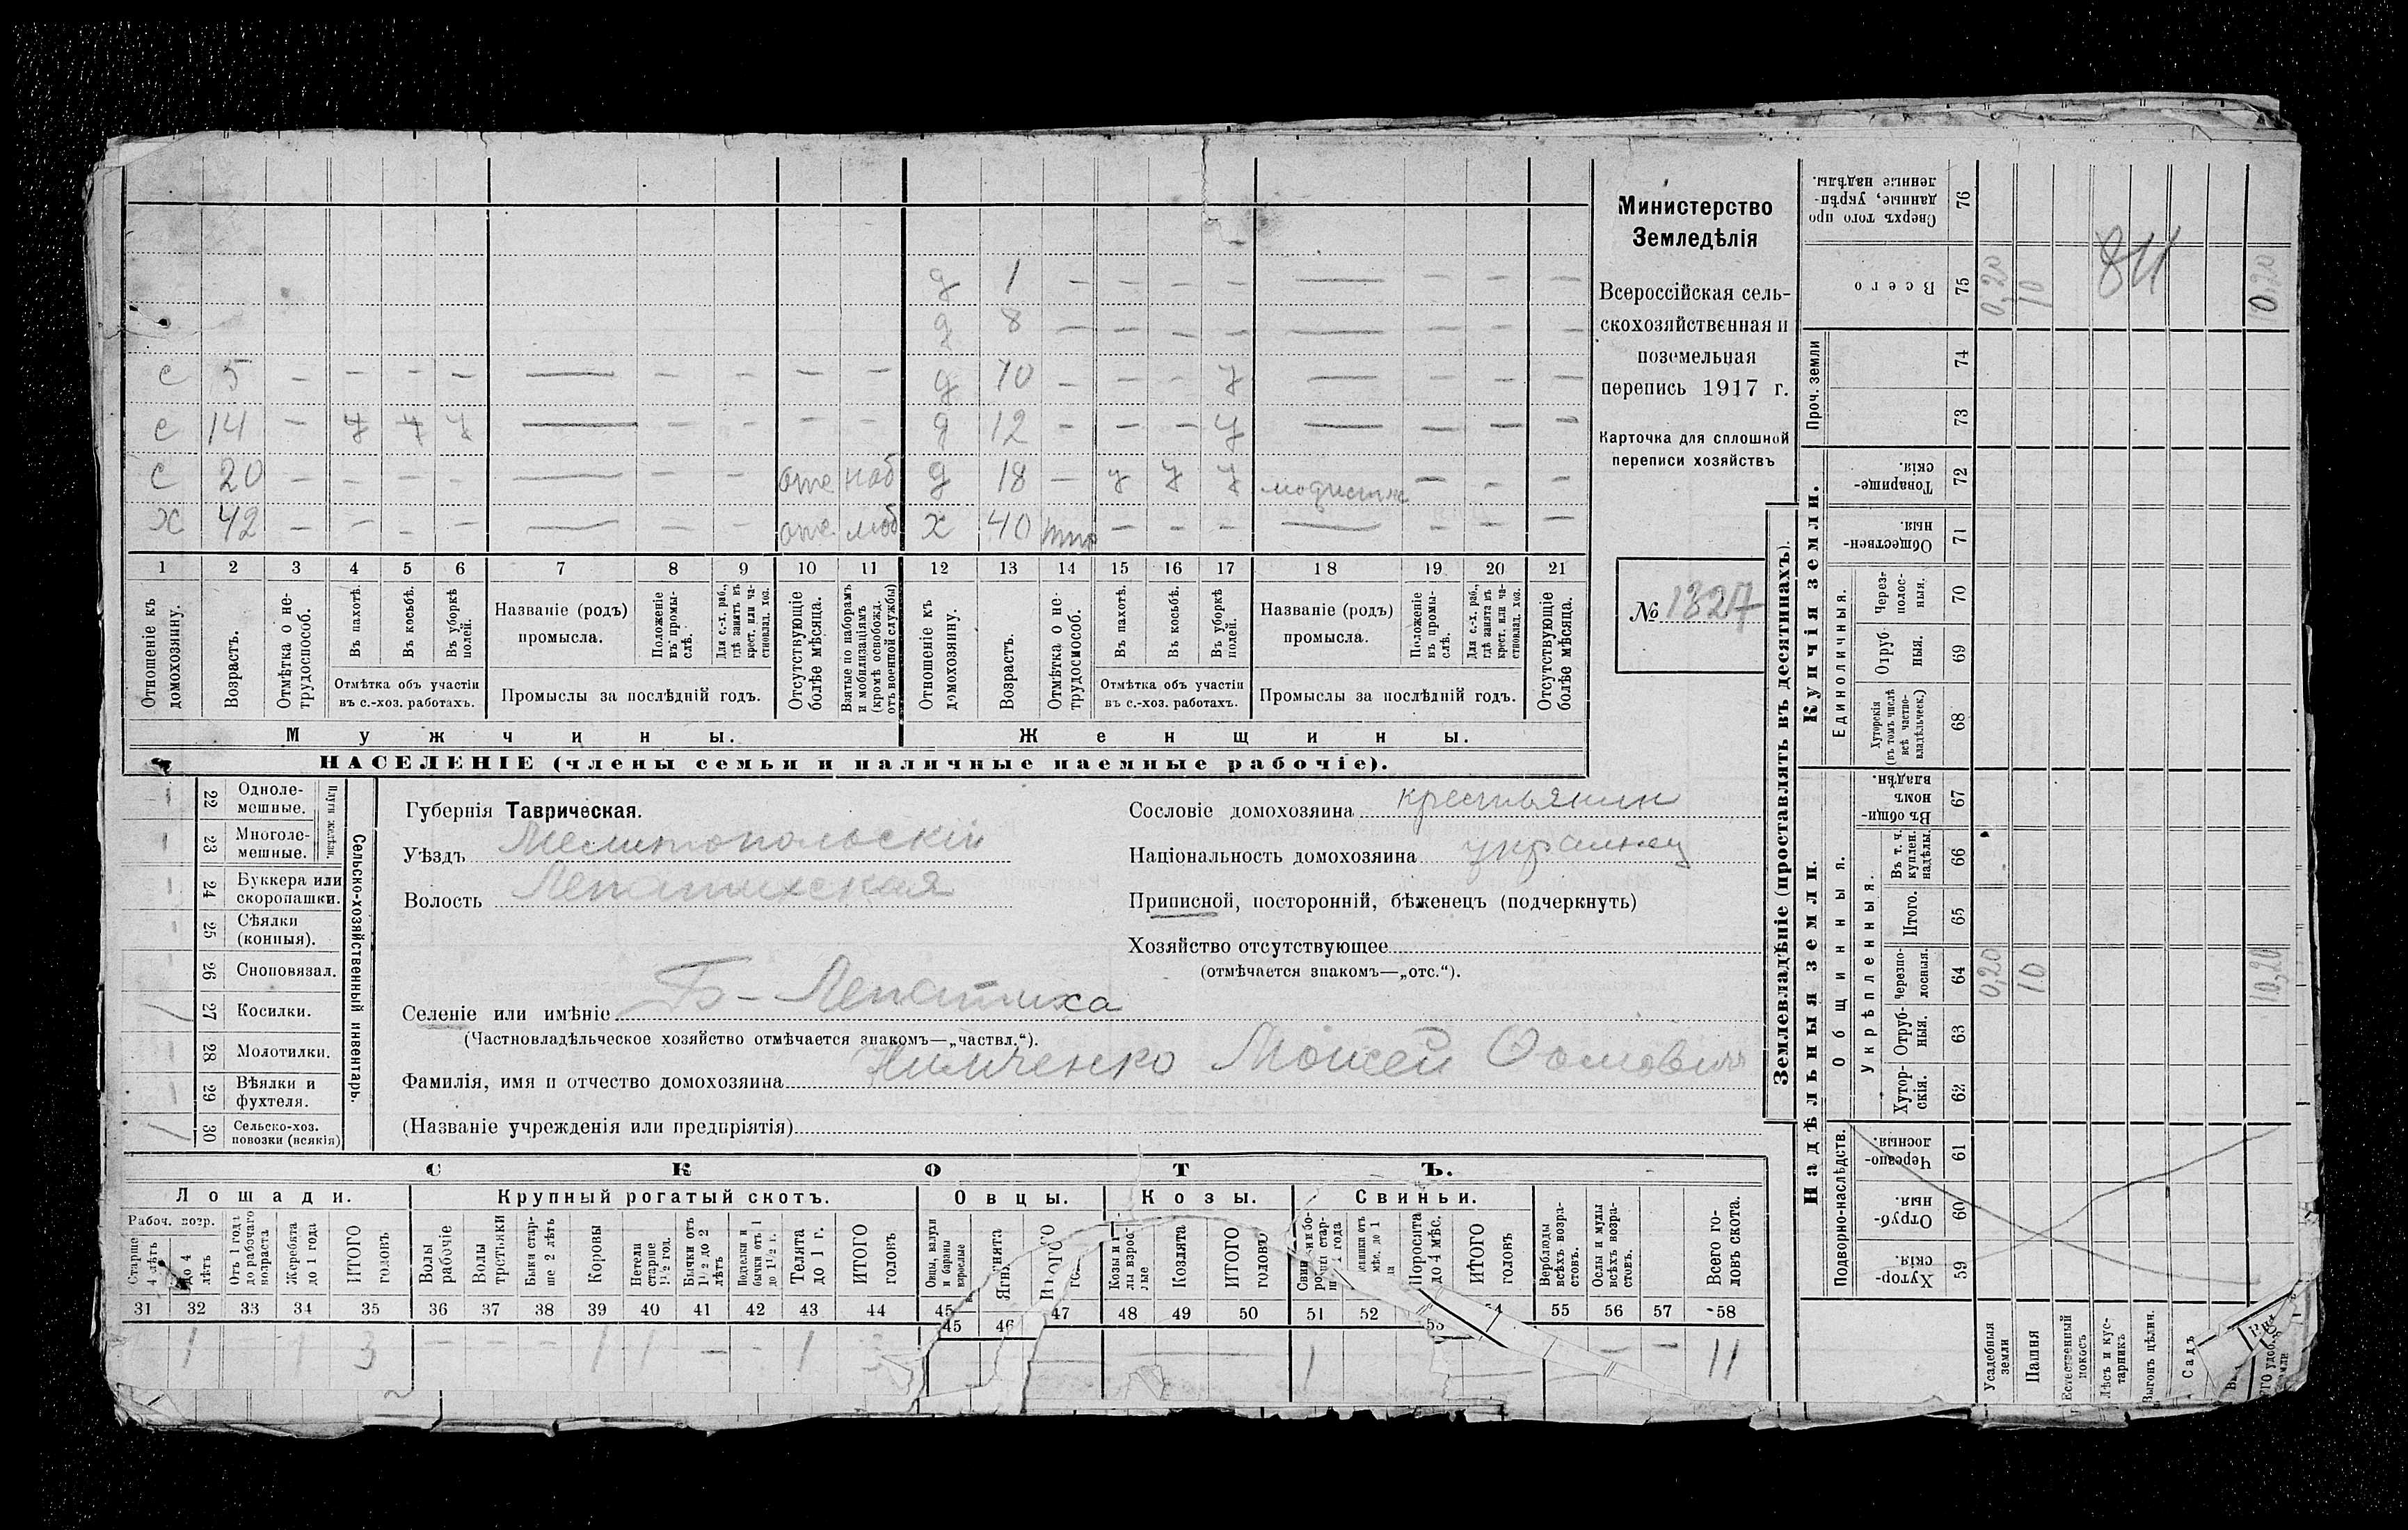 д 1 — — — — — — — —
д 8 — — — — — — — —
с 5 — — — — — — — — — д 10 — — — у — — — —
с 14 — у у у — — — — — д 12 — — — у — — — —
с 20 — — — — — — — отс наб д 18 — у у у модистка — — —
х 42 — — — — — — — отс моб х 40 — — — — — — —
1 2 3 4 5 6 7 8 9 10 11 12 13 14 15 16 17 18 19 20 21
Отношеніе къ домохозяину.
Возрастъ.
Отмѣтка о не-
трудоспособ.
Въ пахотѣ.
Въ косьбѣ.
Въ уборкѣ
полей.
Отмѣтка объ участіи
въ с.-хоз. работахъ.
Названіе (родъ)
промысла.
Положеніе
въ промы-
слѣ.
Для с.-х. раб.,
гдѣ занятъ въ
крест. или ча-
стновлад. хоз.
Промыслы за послѣдній годъ.
Отсутствующіе
болѣе мѣсяца.
Взятые по наборамъ
и мобилизаціямъ
(кромѣ освобожд.
отъ военной службы)
Отношеніе къ
домохозяину.
Возрастъ.
Отмѣтка о не-
трудоспособ.
Въ пахотѣ.
Въ косьбѣ.
Въ уборкѣ
полей.
Отмѣтка объ участіи
въ с.-хоз. работахъ.
Названіе (родъ)
промысла.
Положеніе
въ промы-
слѣ.
Для с.-х. раб.,
гдѣ занята въ
крест. или ча-
стновлад. хоз.
Промыслы за послѣдній годъ.
Отсутствующіе
болѣе мѣсяца.
Мужчины.
Женщины.
НАСЕЛЕНІЕ (члены семьи и наличные наемные рабочіе).
Министерство
Земледѣлія
Всероссійская сель-
скохозяйственная и
поземельная
перепись 1917 г.
Карточка для сплошной
переписи хозяйствъ
№ 1327
22 Одноле-
мешные.
23 Многоле-
мешные.
Плуги желѣзн.
24 Буккера или
скоропашки.
25 Сѣялки
(конныя).
26 Сноповязал.
27 Косилки.
28 Молотилки.
29 Вѣялки и
фухтеля.
30 Сельско-хоз.
повозки (всякія)
Сельско-хозяйственный инвентарь.
Губернія Таврическая.
Уѣздъ Мелитопольскій
Волость Лепатихская
Сословіе домохозяина крестьянин
Національность домохозяина украинец
Приписной, посторонній, бѣженецъ (подчеркнуть)
Хозяйство отсутствующее
(отмѣчается знакомъ—„отс.“).
Селеніе или имѣніе Б-Лепатиха
(Частновладѣльческое хозяйство отмѣчается знакомъ—„частвл.“).
Фамилія, имя и отчество домохозяина Нимченко Моисей Фомович
(Названіе учрежденія или предпріятія)
СКОТЪ.
Лошади.
Рабоч. возр.
Старше
4 лѣтъ
до 4
лѣтъ
Отъ 1 года
до рабочаго
возраста
Жеребята
до 1 года
ИТОГО
головъ
Крупный рогатый скотъ.
Волы
рабочіе
Волы
третьяки
Быки стар-
ше 2 лѣтъ
Коровы
Нетели
старше
1½ год.
Бычки отъ
1½ до 2
лѣтъ
Подтелки и
бычки отъ 1
до 1½ г.
Телята
до 1 г.
ИТОГО
головъ
Овцы.
Овцы, валухи
и бараны
взрослые
Козы.
Козлята
ИТОГО
головъ
Свиньи.
Поросята
до 4 мѣс.
ИТОГО
головъ
Верблюды
всѣхъ возра-
стовъ.
Ослы и мулы
всѣхъ возра-
стовъ.
Всего го-
ловъ скота.
31 32 33 34 35 36 37 38 39 40 41 42 43 44 45 46 47 48 49 50 51 52 53 54 55 56 57 58
1 1 3 — — — 1 1 — — 1 3 1 — — 11
Землевладѣніе (проставлять въ десятинахъ).
Купчія земли.
Надѣльныя земли.
Сверхъ того про
данные, укрѣп-
ленные надѣлы.
76
Всего 75 0,20 10 84 0,20
Проч. земли
74
73
Товарище-
скія.
72
Обществен-
ныя.
71
Единоличныя.
Черезп-
полос-
ныя.
70
Отруб-
ныя.
69
Хуторскія
(въ томъ числѣ
всѣ частно-
владѣльческ.)
68
Общинныя.
Въ общи-
номъ
владѣн.
67
Укрѣпленныя.
Въ т. ч.
куплен.
надѣлы.
66
Итого.
65
Черезпо-
лосныя.
64 0,20 10 10,20
Отруб-
ныя.
63
Хутор-
скія.
62
Подворно-наслѣдств.
Черезпо-
лосныя.
61
Отруб-
ныя.
60
Хутор-
скія.
59
Усадебныя
земли
Пашня
Естественный
покосъ
Лѣсъ и кус-
тарникъ
Выгонъ цѣлин.
Садъ